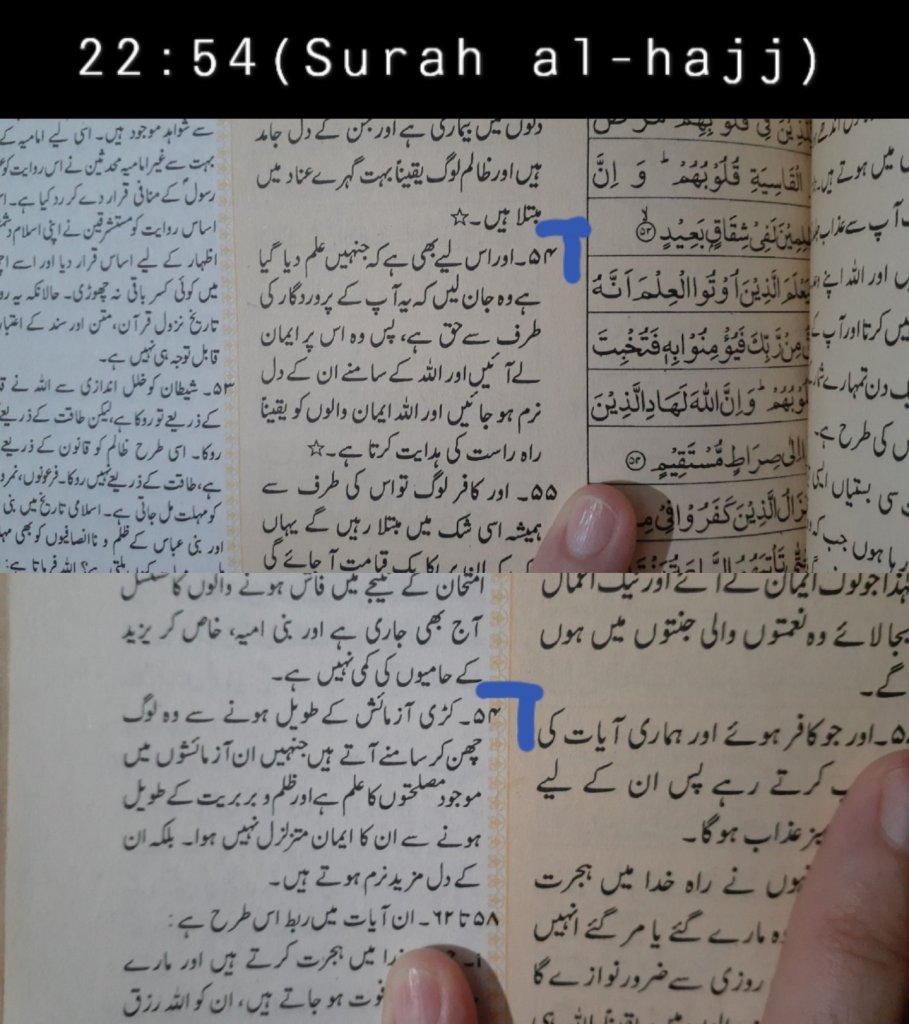 22:54(Surah al-hajj)
دلوں میں بیماری ہے اور جن کے دل جامد
ہیں اور ظالم لوگ یقیناً بہت گہرے عناد میں
مبتلا ہیں۔☆
۵۴۔ اور اس لیے بھی ہے کہ جنہیں علم دیا گیا
ہے وہ جان لیں کہ یہ آپ کے پروردگار کی
طرف سے حق ہے، پس وہ اس پر ایمان
لے آئیں اور اللہ کے سامنے ان کے دل
نرم ہو جائیں اور اللہ ایمان والوں کو یقیناً
راہ راست کی ہدایت کرتا ہے۔☆
۵۵۔ اور کافر لوگ تو اس کی طرف سے
ہمیشہ اسی شک میں مبتلا رہیں گے یہاں
الْقَاسِيَةِ قُلُوْبُهُمْ ؕ وَ اِنَّ
لَفِيْ شِقَاقٍۭ بَعِيْدٍ ۵۳
الَّذِيْنَ اُوْتُوا الْعِلْمَ اَنَّهُ
مِنْ رَّبِّكَ فَيُؤْمِنُوْا بِهٖ فَتُخْبِتَ
وَ اِنَّ اللّٰهَ لَهَادِ الَّذِيْنَ
اِلٰى صِرَاطٍ مُّسْتَقِيْمٍ ۵۴
الَّذِيْنَ كَفَرُوْا فِيْ
سے شواہد موجود ہیں۔ اسی لیے امامیہ کے
بہت سے غیر امامیہ محدثین نے اس روایت کو
رسولؐ کے منافی قرار دے کر رد کیا ہے۔
اساس روایت کو مستشرقین نے اپنی اسلام
اظہار کے لیے اساس قرار دیا اور اسے
میں کوئی کسر باقی نہ چھوڑی۔ حالانکہ یہ
تاریخ نزول قرآن، متن اور سند کے اعتبار
قابل توجہ ہی نہیں ہے۔
۵۳۔ شیطان کو خلل اندازی سے اللہ نے
کے ذریعے تو روکا ہے، لیکن طاقت کے ذریعے
روکا۔ اسی طرح ظالم کو قانون کے ذریعے
ہے، طاقت کے ذریعے نہیں روکا۔ فرعونوں،
کو مہلت مل جاتی ہے۔ اسلامی تاریخ میں بنی
اور بنی عباس کے ظلم و ناانصافیوں کو بھی
امتحان کے نتیجے میں فاش ہونے والوں کا تسلسل
آج بھی جاری ہے اور بنی امیہ، خاص کر یزید
کے حامیوں کی کمی نہیں ہے۔
۵۴۔ کڑی آزمائش کے طویل ہونے سے وہ لوگ
چھن کر سامنے آتے ہیں جنہیں ان آزمائشوں میں
موجود مصلحتوں کا علم ہے اور ظلم و بربریت کے طویل
ہونے سے ان کا ایمان متزلزل نہیں ہوا۔ بلکہ ان
کے دل مزید نرم ہوتے ہیں۔
۵۸ تا ۶۲۔ ان آیات میں ربط اس طرح ہے:
میں ہجرت کرتے ہیں اور مارے
فوت ہو جاتے ہیں، ان کو اللہ رزق
لہٰذا جو لوگ ایمان لے آئے اور نیک اعمال
بجا لائے وہ نعمتوں والی جنتوں میں ہوں
گے۔
اور جو کافر ہوئے اور ہماری آیات کی
کرتے رہے پس ان کے لیے
عذاب ہو گا۔
نے راہ خدا میں ہجرت
مارے گئے یا مر گئے انہیں
روزی سے ضرور نوازے گا